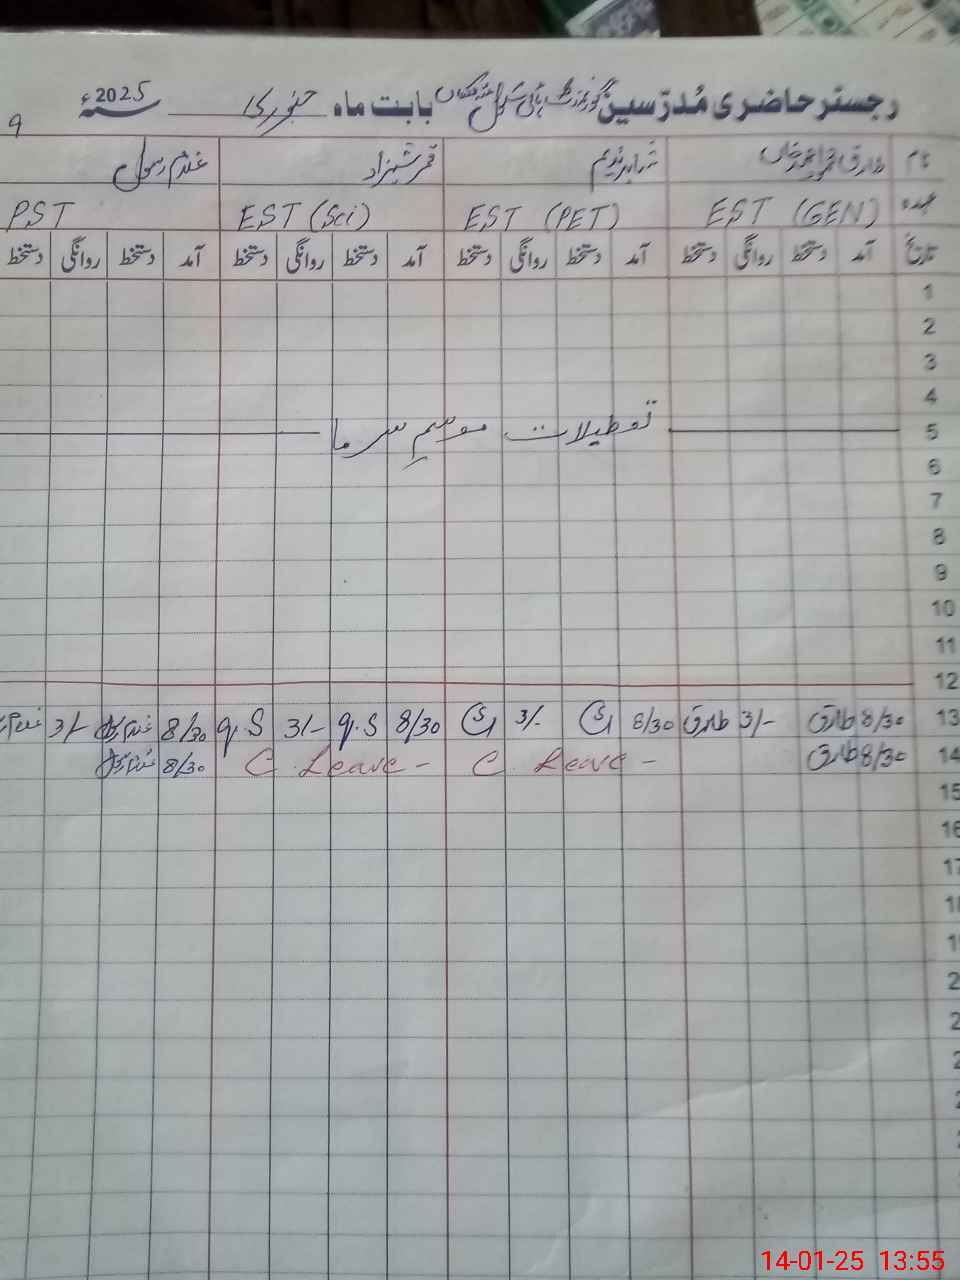 رجسٹر حاضری مُدرّسین گورنمنٹ ہائی سکول بابت ماہ جنوری سنہ 2025ء
9
نام طارق خان شاہد ندیم قمر شہزاد غلام رسول
عہدہ EST (GEN) EST (PET) EST (Sci) PST
تاریخ آمد دستخط روانگی دستخط آمد دستخط روانگی دستخط آمد دستخط روانگی دستخط آمد دستخط روانگی دستخط
1
2
3
4
5 تعطیلات موسمِ سرما
6
7
8
9
10
11
12
13 8/30 طارق 3/- طارق 8/30 3/- 8/30 q.S 3/- q.S 8/30 3/-
14 8/30 طارق C. Leave - C. Leave - 8/30
15
16
14-01-25 13:55